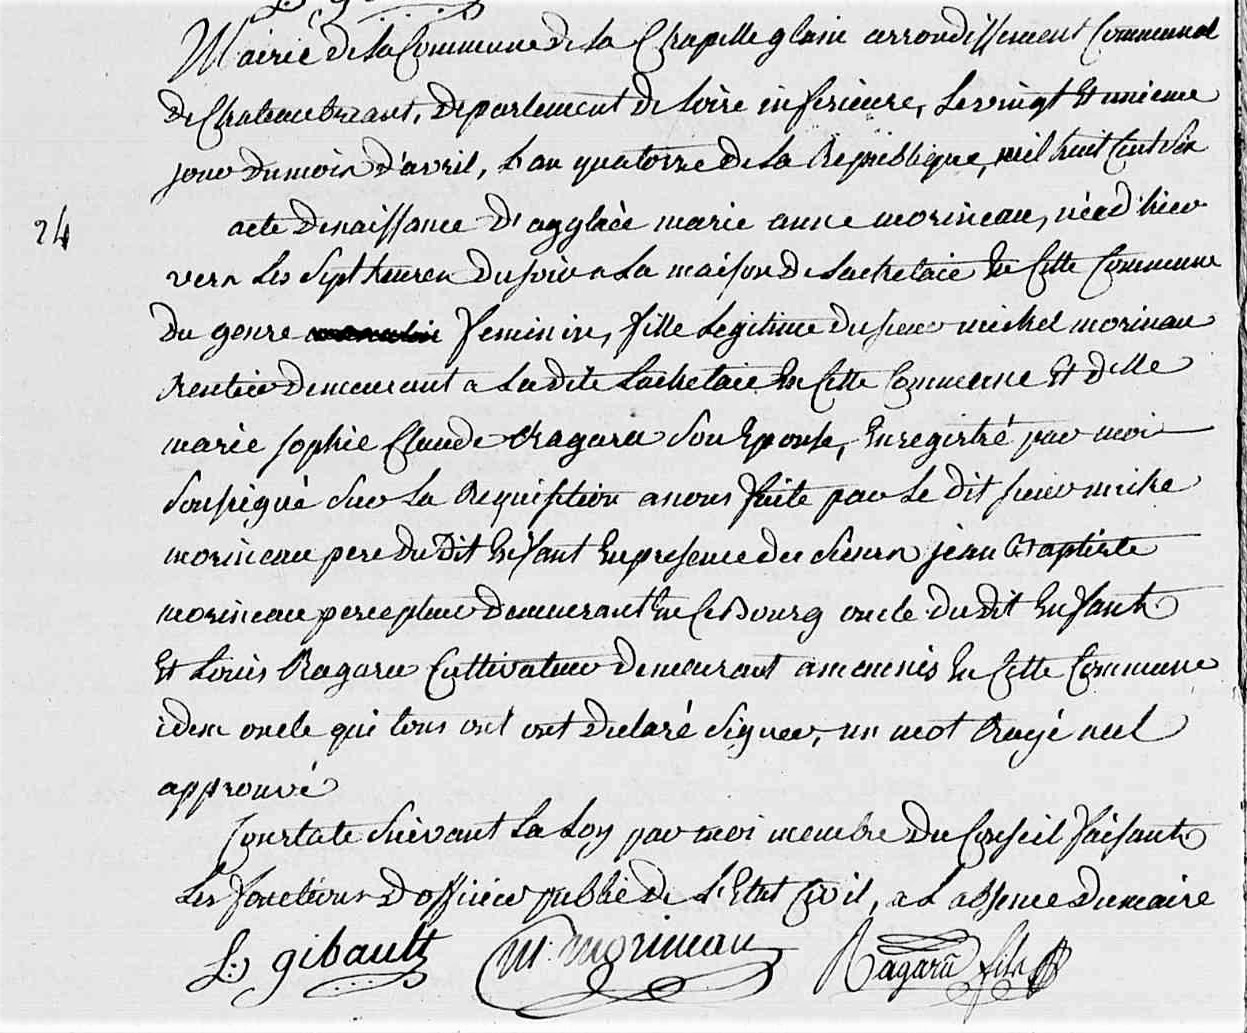 Mairie de la Commune de la Chapelle glain arrondissement Communal
de Chateaubriant, departement de loire inferieure, le vingt et unieme
jour du mois d'avril, l'an quatorze de la Republique, mil huit cent six
24
acte de naissance d'agglaëe marie anne morineau, née d'hier
vers les sept heures du soir a la maison de Lachetaie en Cette Commune
du genre feminin, fille legitime du sieur michel morineau
Rentier demeurant a la dite Lachetaie en Cette Commune et d'elle
marie sophie Claude Ragaru son epouse, enregistré par moi
soussigné sur la Requisition a nous faite par le dit sieur miche
morineau pere du dit enfant en presence des sieurs jean Baptiste
morineau percepteur demeurant en ce Bourg oncle du dit enfant
et Louis Ragaru Cultivateur demeurant a en Cette Commune
idem oncle qui tous ont ont declaré signer, un mot Rayé nul
approuvé
Constate suivant la Loy par moi membre du Conseil faisant
les fonctions d'officier public de l'Etat Civil, a l'absence du maire
L. gibault M. morineau Ragaru fils